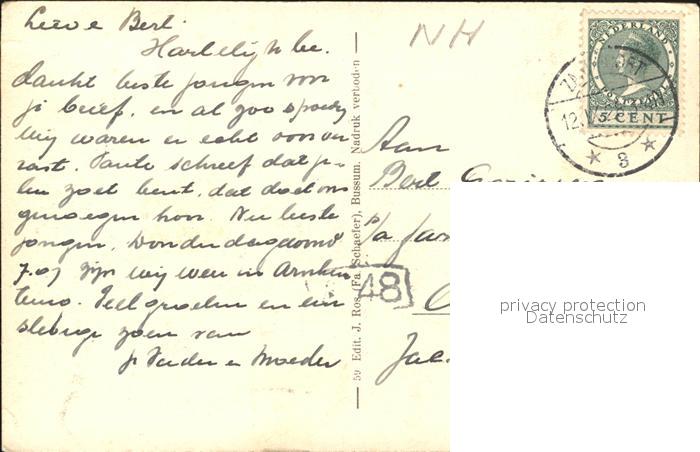 Lieve Bert.
Hartelijk be-
dankt beste jongen voor
je brief, en al zoo spoedig
wij waren er echt door ver
rast. Tante schreef dat je
zoet bent, dat doet ons
genoegen hoor. Nu beste
jongen, Donderdagavond
7.07 zijn wij weer in Arnhem
Veel groeten en een
zoen van
je Vader en Moeder
59 Edit. J. Ros (Fa. Schaefer), Bussum. Nadruk verboden
NH
NEDERLAND
POSTZEGEL
5 CENT
12.
3
Aan
Bert
p/a
48
Jac.
privacy protection
Datenschutz